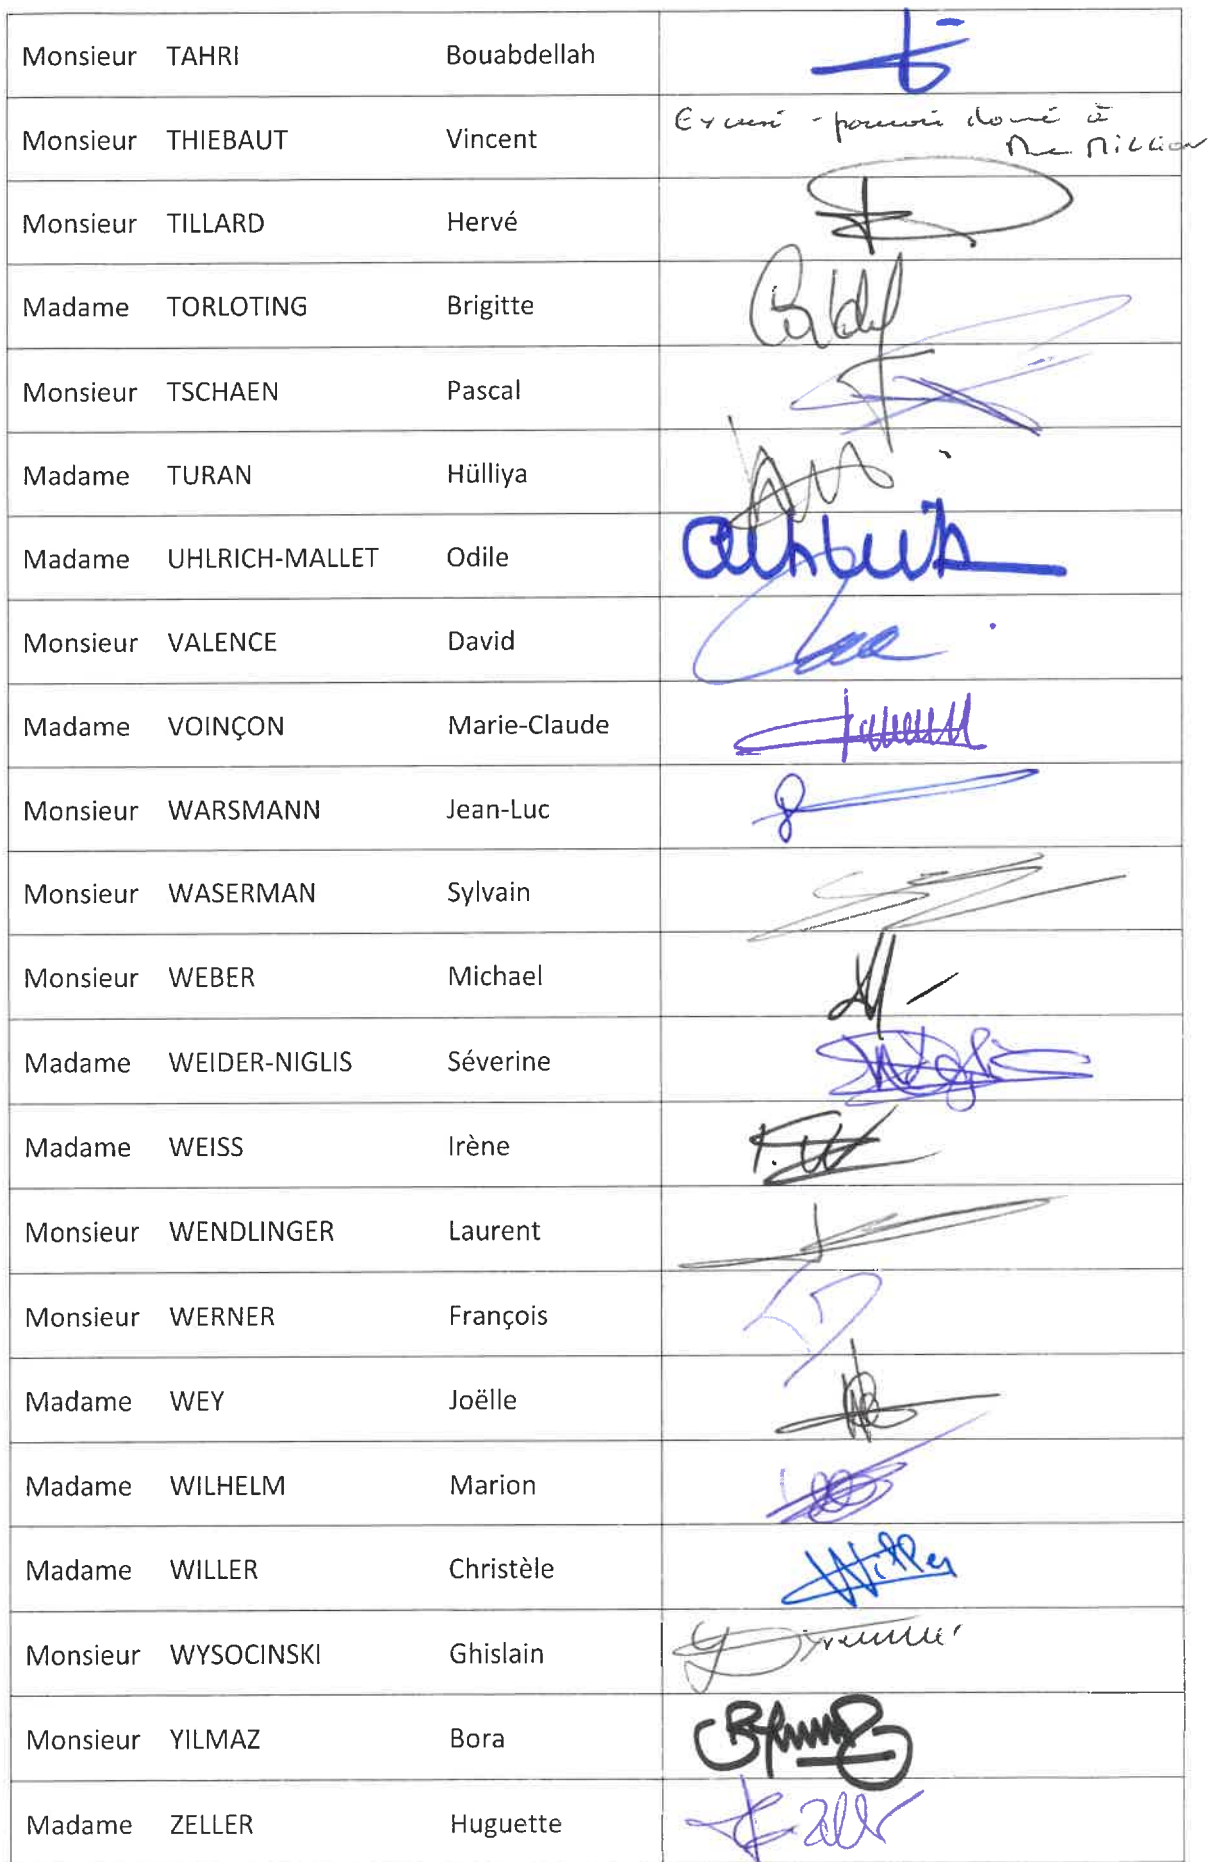 Monsieur TAHRI Bouabdellah
Monsieur THIEBAUT Vincent Excusé - pouvoir donné à
Me Million
Monsieur TILLARD Hervé
Madame TORLOTING Brigitte
Monsieur TSCHAEN Pascal
Madame TURAN Hülliya
Madame UHLRICH-MALLET Odile
Monsieur VALENCE David
Madame VOINÇON Marie-Claude
Monsieur WARSMANN Jean-Luc
Monsieur WASERMAN Sylvain
Monsieur WEBER Michael
Madame WEIDER-NIGLIS Séverine
Madame WEISS Irène
Monsieur WENDLINGER Laurent
Monsieur WERNER François
Madame WEY Joëlle
Madame WILHELM Marion
Madame WILLER Christèle Willer
Monsieur WYSOCINSKI Ghislain
Monsieur YILMAZ Bora
Madame ZELLER Huguette Zeller